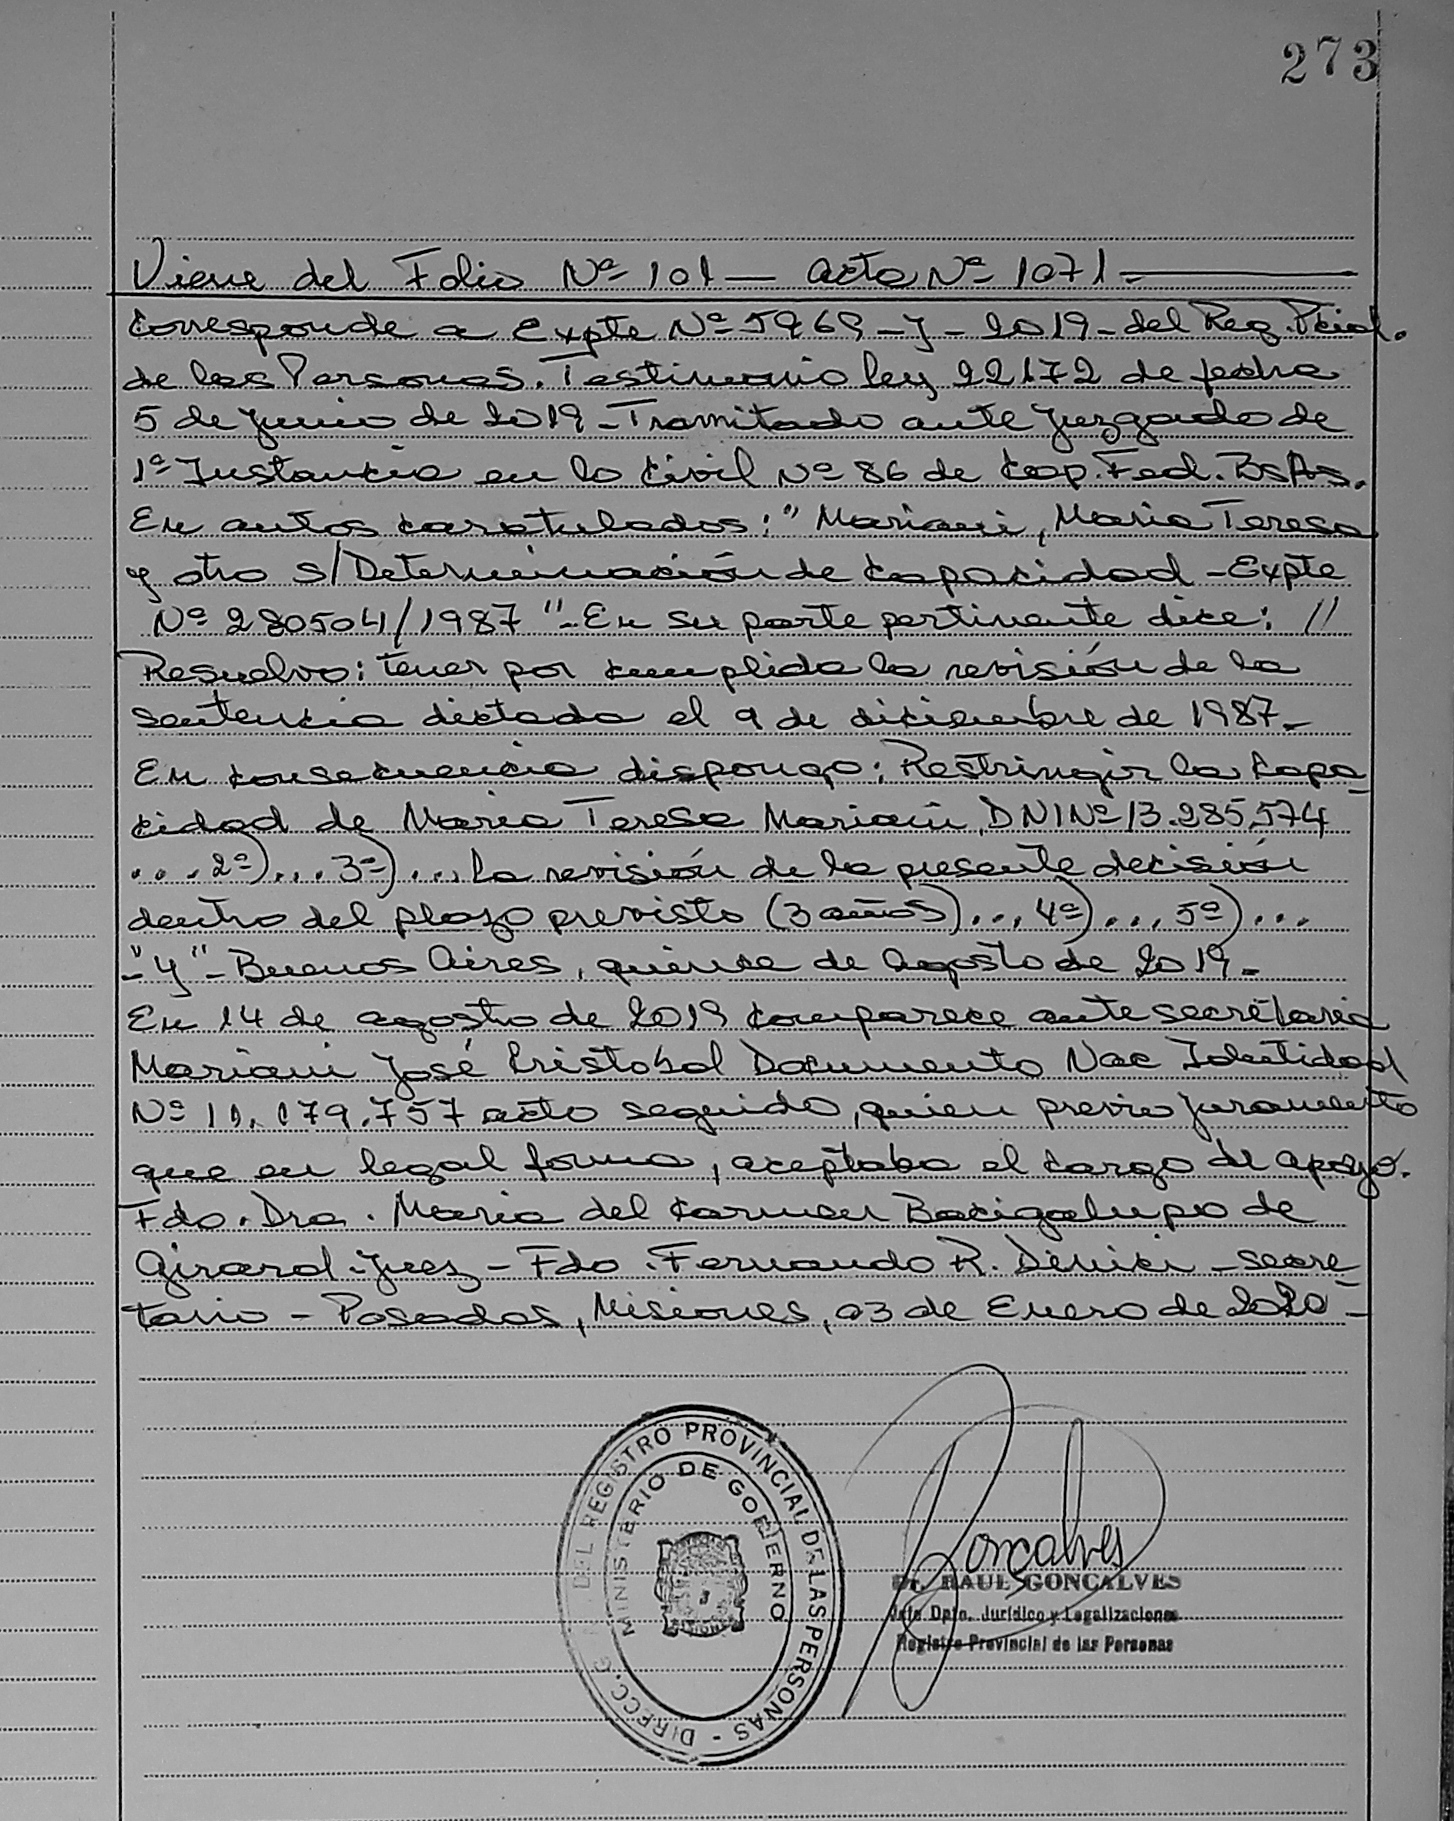 273
Viene del Folio Nº 101 — acta Nº 1071 -
Corresponde a Expte Nº 5969 - J - 2019 - del Reg. Pcial.
de las Personas. Testimonio ley 22172 de fecha
5 de junio de 2019 - Tramitado ante Juzgado de
1ª Instancia en lo Civil Nº 86 de Cap. Fed. BsAs.
En autos caratulados: "Mariani, Maria Teresa
y otro s/ Determinación de Capacidad - Expte
Nº 280504/1987" - En su parte pertinente dice: //
Resuelvo: tener por cumplida la revisión de la
sentencia dictada el 9 de diciembre de 1987 -
En consecuencia dispongo: Restringir la Capa
cidad de Maria Teresa Mariani, DNI Nº 13.285.574
... 2º) ... 3º) ... La revisión de la presente decisión
dentro del plazo previsto (3 años) ... 4º) ... 5º) ...
-"y"- Buenos Aires, quince de agosto de 2019 -
En 14 de agosto de 2019 comparece ante secretaria
Mariani José Cristobal Documento Nac Identidad
Nº 11.179.757 acto seguido, quien previo juramento
que en legal forma, aceptaba el cargo de apoyo.
Fdo. Dra. Maria del Carmen Bacigalupo de
Girard - Juez - Fdo. Fernando R. - secre
tario - Posadas, Misiones, 03 de Enero de 2020 -
DIRECC. G DEL REGISTRO PROVINCIAL DE LAS PERSONAS -
MINISTERIO DE GOBIERNO
Goncalves
Dr. RAUL GONCALVES
Jefe Dpto. Jurídico y Legalizaciones
Registro Provincial de las Personas